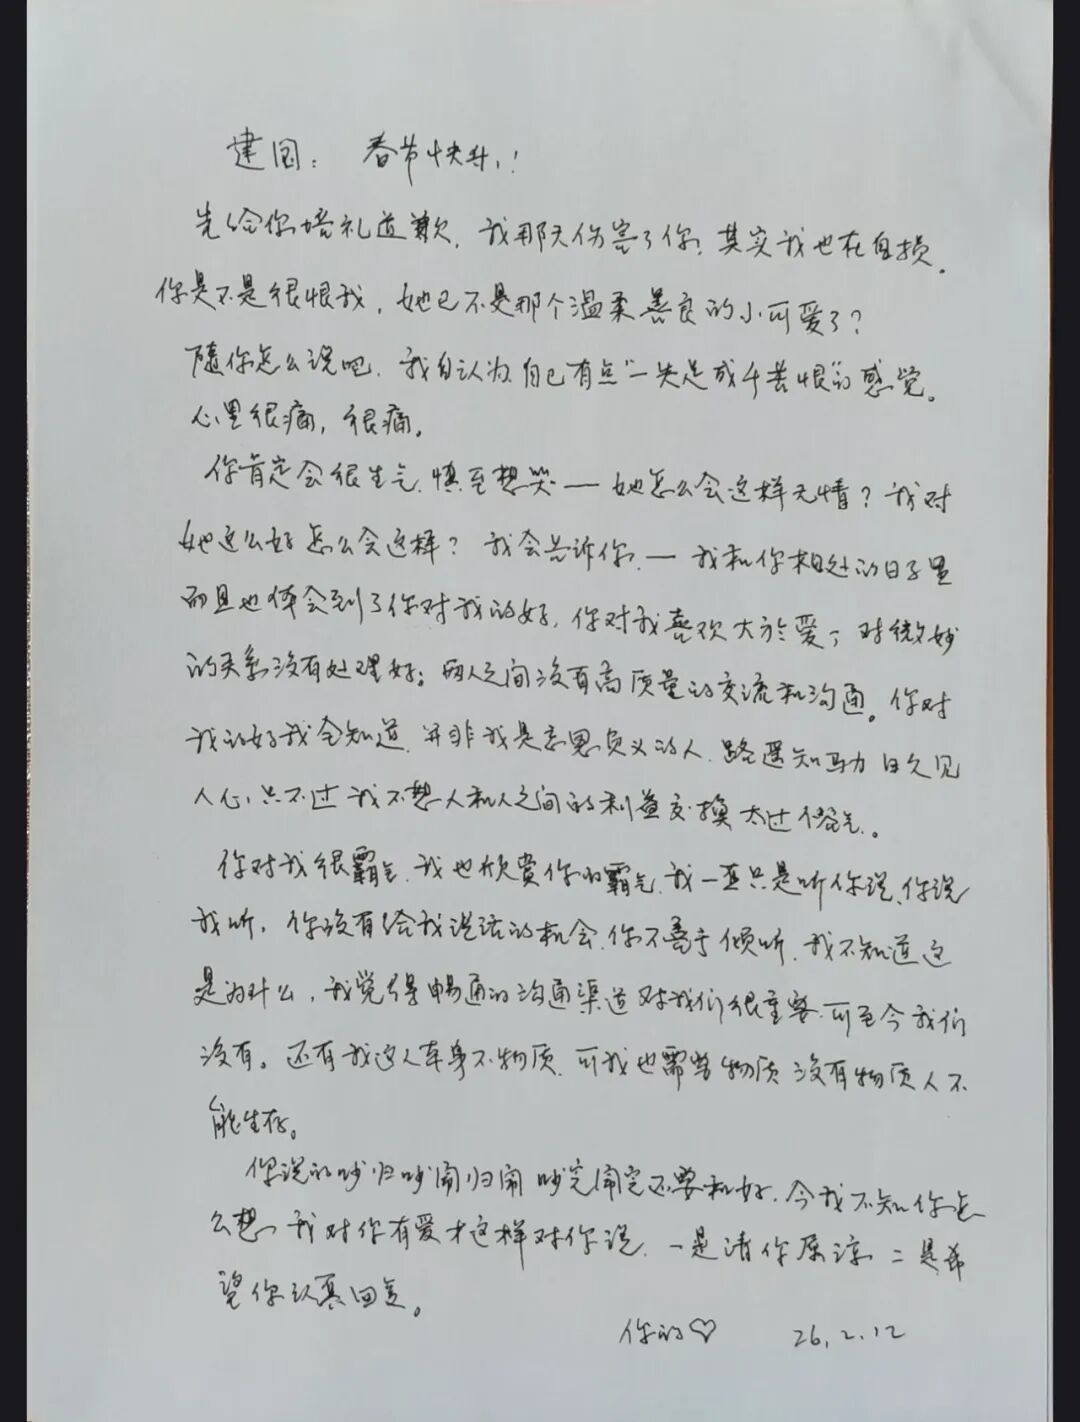 建国： 春节快乐！
先给你赔礼道歉，我那天伤害了你，其实我也在自损。
你是不是很恨我，她已不是那个温柔善良的小可爱了？
随你怎么说吧，我自认为自己有点"一失足成千苦恨"的感觉。
心里很痛，很痛。
你肯定会很生气，慎至想哭——她怎么会这样无情？我对
她这么好怎么会这样？我会告诉你，——我和你相处的日子里
而且也体会到了你对我的好，你对我喜欢大于爱，对微妙
的关系没有处理好；两人之间没有高质量的交流和沟通。你对
我的好我全知道，并非我是忘恩负义的人，路遥知马力日久见
人心，只不过我不想人和人之间的利益交换太过俗气。
你对我很霸气，我也欣赏你的霸气，我一直只是听你说、你说
我听，你没有给我说话的机会，你不善于倾听，我不知道这
是为什么，我觉得畅通的沟通渠道对我们很重要，可至今我们
没有。还有我这人本身不物质，可我也需要物质 没有物质人不
能生存。
你说的吵归吵闹归闹 吵完闹完还要和好，今我不知你怎
么想，我对你有爱才这样对你说，一是请你原谅 二是希
望你认真回复。
你的♡ 26.2.12